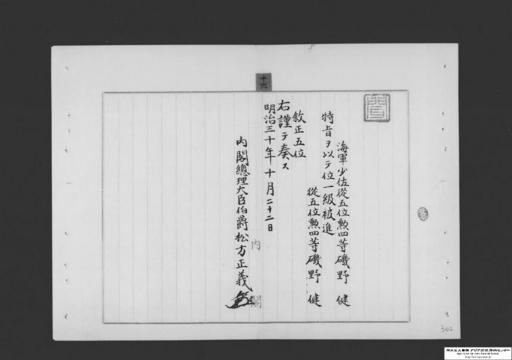 海軍少佐從五位勲四等磯野健
特旨ヲ以テ位一級被進
從五位勲四等磯野健
敘正五位
右謹テ奏ス
明治三十年十月二十二日
內閣總理大臣伯爵松方正義
內閣